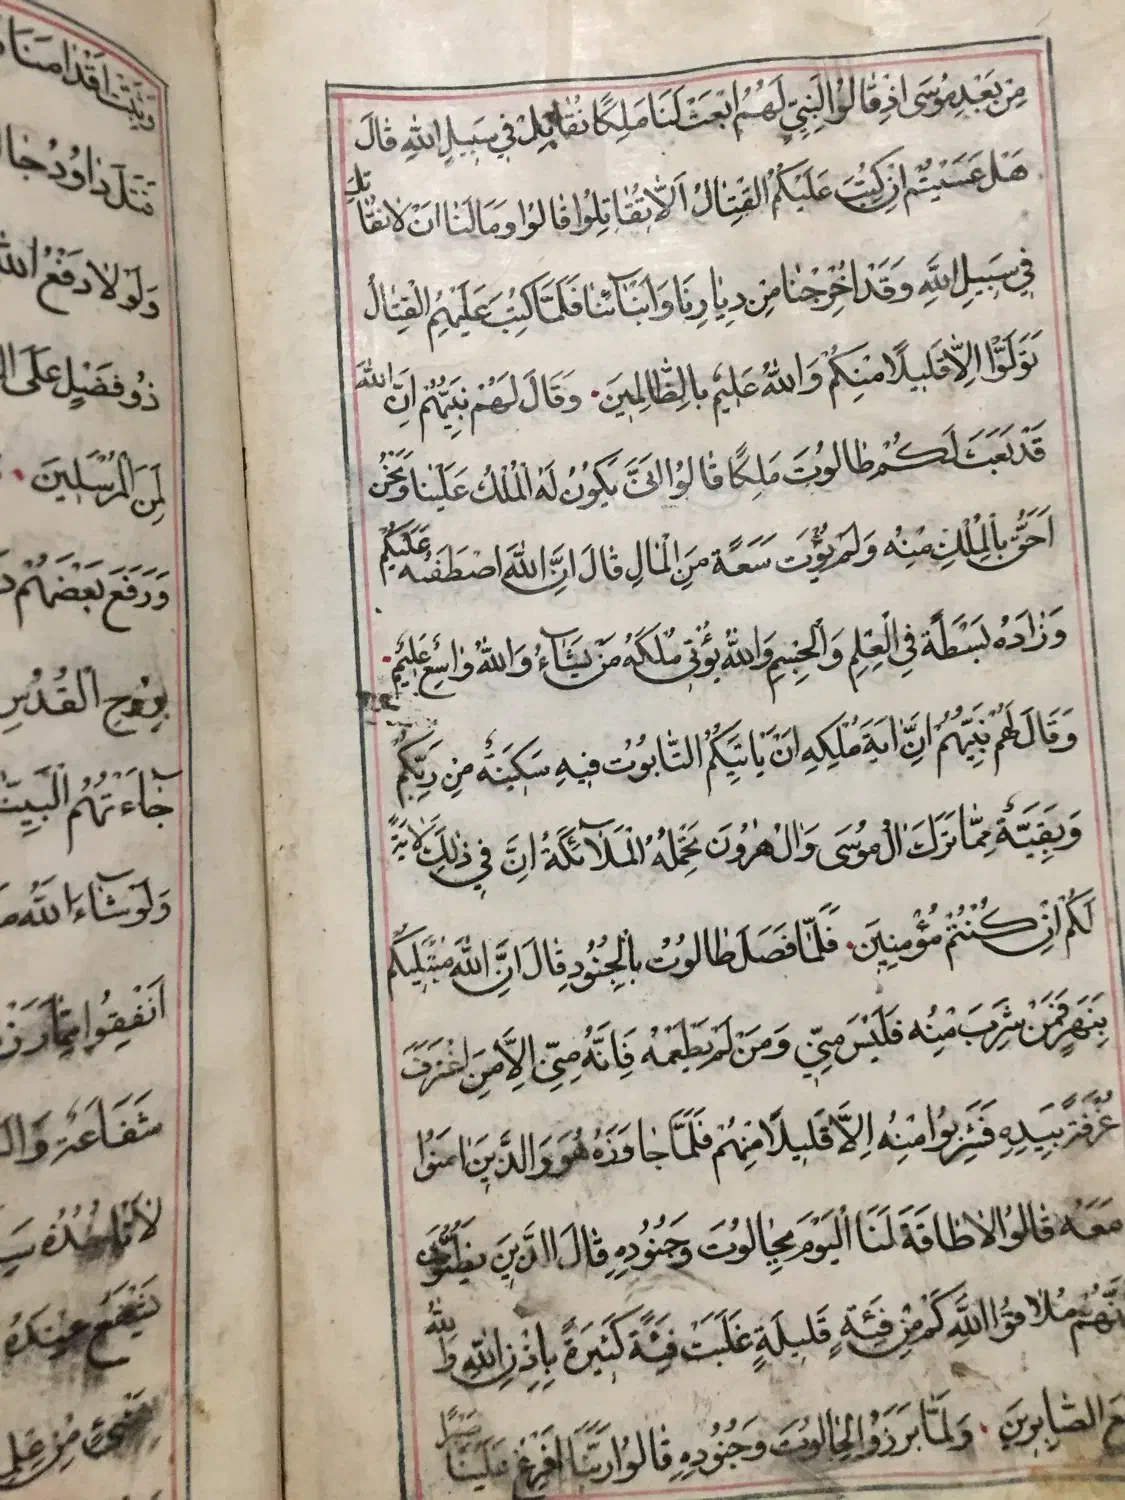 مِنْ بَعْدِ مُوسَى اِذْ قَالُوا لِنَبِيٍّ لَهُمُ ابْعَثْ لَنَا مَلِكًا نُقَاتِلْ فِي سَبِيلِ اللّٰهِ قَالَ
هَلْ عَسَيْتُمْ اِنْ كُتِبَ عَلَيْكُمُ الْقِتَالُ اَلَّا تُقَاتِلُوا قَالُوا وَمَا لَنَا اَنْ لَا نُقَاتِلَ
فِي سَبِيلِ اللّٰهِ وَقَدْ اُخْرِجْنَا مِنْ دِيَارِنَا وَاَبْنَائِنَا فَلَمَّا كُتِبَ عَلَيْهِمُ الْقِتَالُ
تَوَلَّوْا اِلَّا قَلِيلًا مِنْكُمْ وَاللّٰهُ عَلِيمٌ بِالظَّالِمِينَ وَقَالَ لَهُمْ نَبِيُّهُمْ اِنَّ اللّٰهَ
قَدْ بَعَثَ لَكُمْ طَالُوتَ مَلِكًا قَالُوا اَنَّى يَكُونُ لَهُ الْمُلْكُ عَلَيْنَا وَنَحْنُ
اَحَقُّ بِالْمُلْكِ مِنْهُ وَلَمْ يُؤْتَ سَعَةً مِنَ الْمَالِ قَالَ اِنَّ اللّٰهَ اصْطَفٰيهُ عَلَيْكُمْ
وَزَادَهُ بَسْطَةً فِي الْعِلْمِ وَالْجِسْمِ وَاللّٰهُ يُؤْتِي مُلْكَهُ مَنْ يَشَاءُ وَاللّٰهُ وَاسِعٌ عَلِيمٌ
وَقَالَ لَهُمْ نَبِيُّهُمْ اِنَّ اٰيَةَ مُلْكِهِ اَنْ يَاْتِيَكُمُ التَّابُوتُ فِيهِ سَكِينَةٌ مِنْ رَبِّكُمْ
وَبَقِيَّةٌ مِمَّا تَرَكَ اٰلُ مُوسَى وَاٰلُ هٰرُونَ تَحْمِلُهُ الْمَلَائِكَةُ اِنَّ فِي ذٰلِكَ لَاٰيَةً
لَكُمْ اِنْ كُنْتُمْ مُؤْمِنِينَ فَلَمَّا فَصَلَ طَالُوتُ بِالْجُنُودِ قَالَ اِنَّ اللّٰهَ مُبْتَلِيكُمْ
بِنَهَرٍ فَمَنْ شَرِبَ مِنْهُ فَلَيْسَ مِنِّي وَمَنْ لَمْ يَطْعَمْهُ فَاِنَّهُ مِنِّي اِلَّا مَنِ اغْتَرَفَ
غُرْفَةً بِيَدِهِ فَشَرِبُوا مِنْهُ اِلَّا قَلِيلًا مِنْهُمْ فَلَمَّا جَاوَزَهُ هُوَ وَالَّذِينَ اٰمَنُوا
مَعَهُ قَالُوا لَا طَاقَةَ لَنَا الْيَوْمَ بِجَالُوتَ وَجُنُودِهِ قَالَ الَّذِينَ يَظُنُّونَ
اَنَّهُمْ مُلَاقُوا اللّٰهِ كَمْ مِنْ فِئَةٍ قَلِيلَةٍ غَلَبَتْ فِئَةً كَثِيرَةً بِاِذْنِ اللّٰهِ وَاللّٰهُ
مَعَ الصَّابِرِينَ وَلَمَّا بَرَزُوا لِجَالُوتَ وَجُنُودِهِ قَالُوا رَبَّنَا اَفْرِغْ عَلَيْنَا صَبْرًا
وَثَبِّتْ اَقْدَامَنَا
دَاوُدُ
وَلَوْلَا دَفْعُ اللّٰهِ
ذُو فَضْلٍ عَلَى
لَمِنَ الْمُرْسَلِينَ
وَرَفَعَ بَعْضَهُمْ
بِرُوحِ الْقُدُسِ
جَاءَتْهُمُ
وَلَوْ شَاءَ اللّٰهُ
اَنْفِقُوا مِمَّا
شَفَاعَةٌ
لَا تَاْخُذُهُ
يَشْفَعُ عِنْدَهُ
بِشَيْءٍ مِنْ